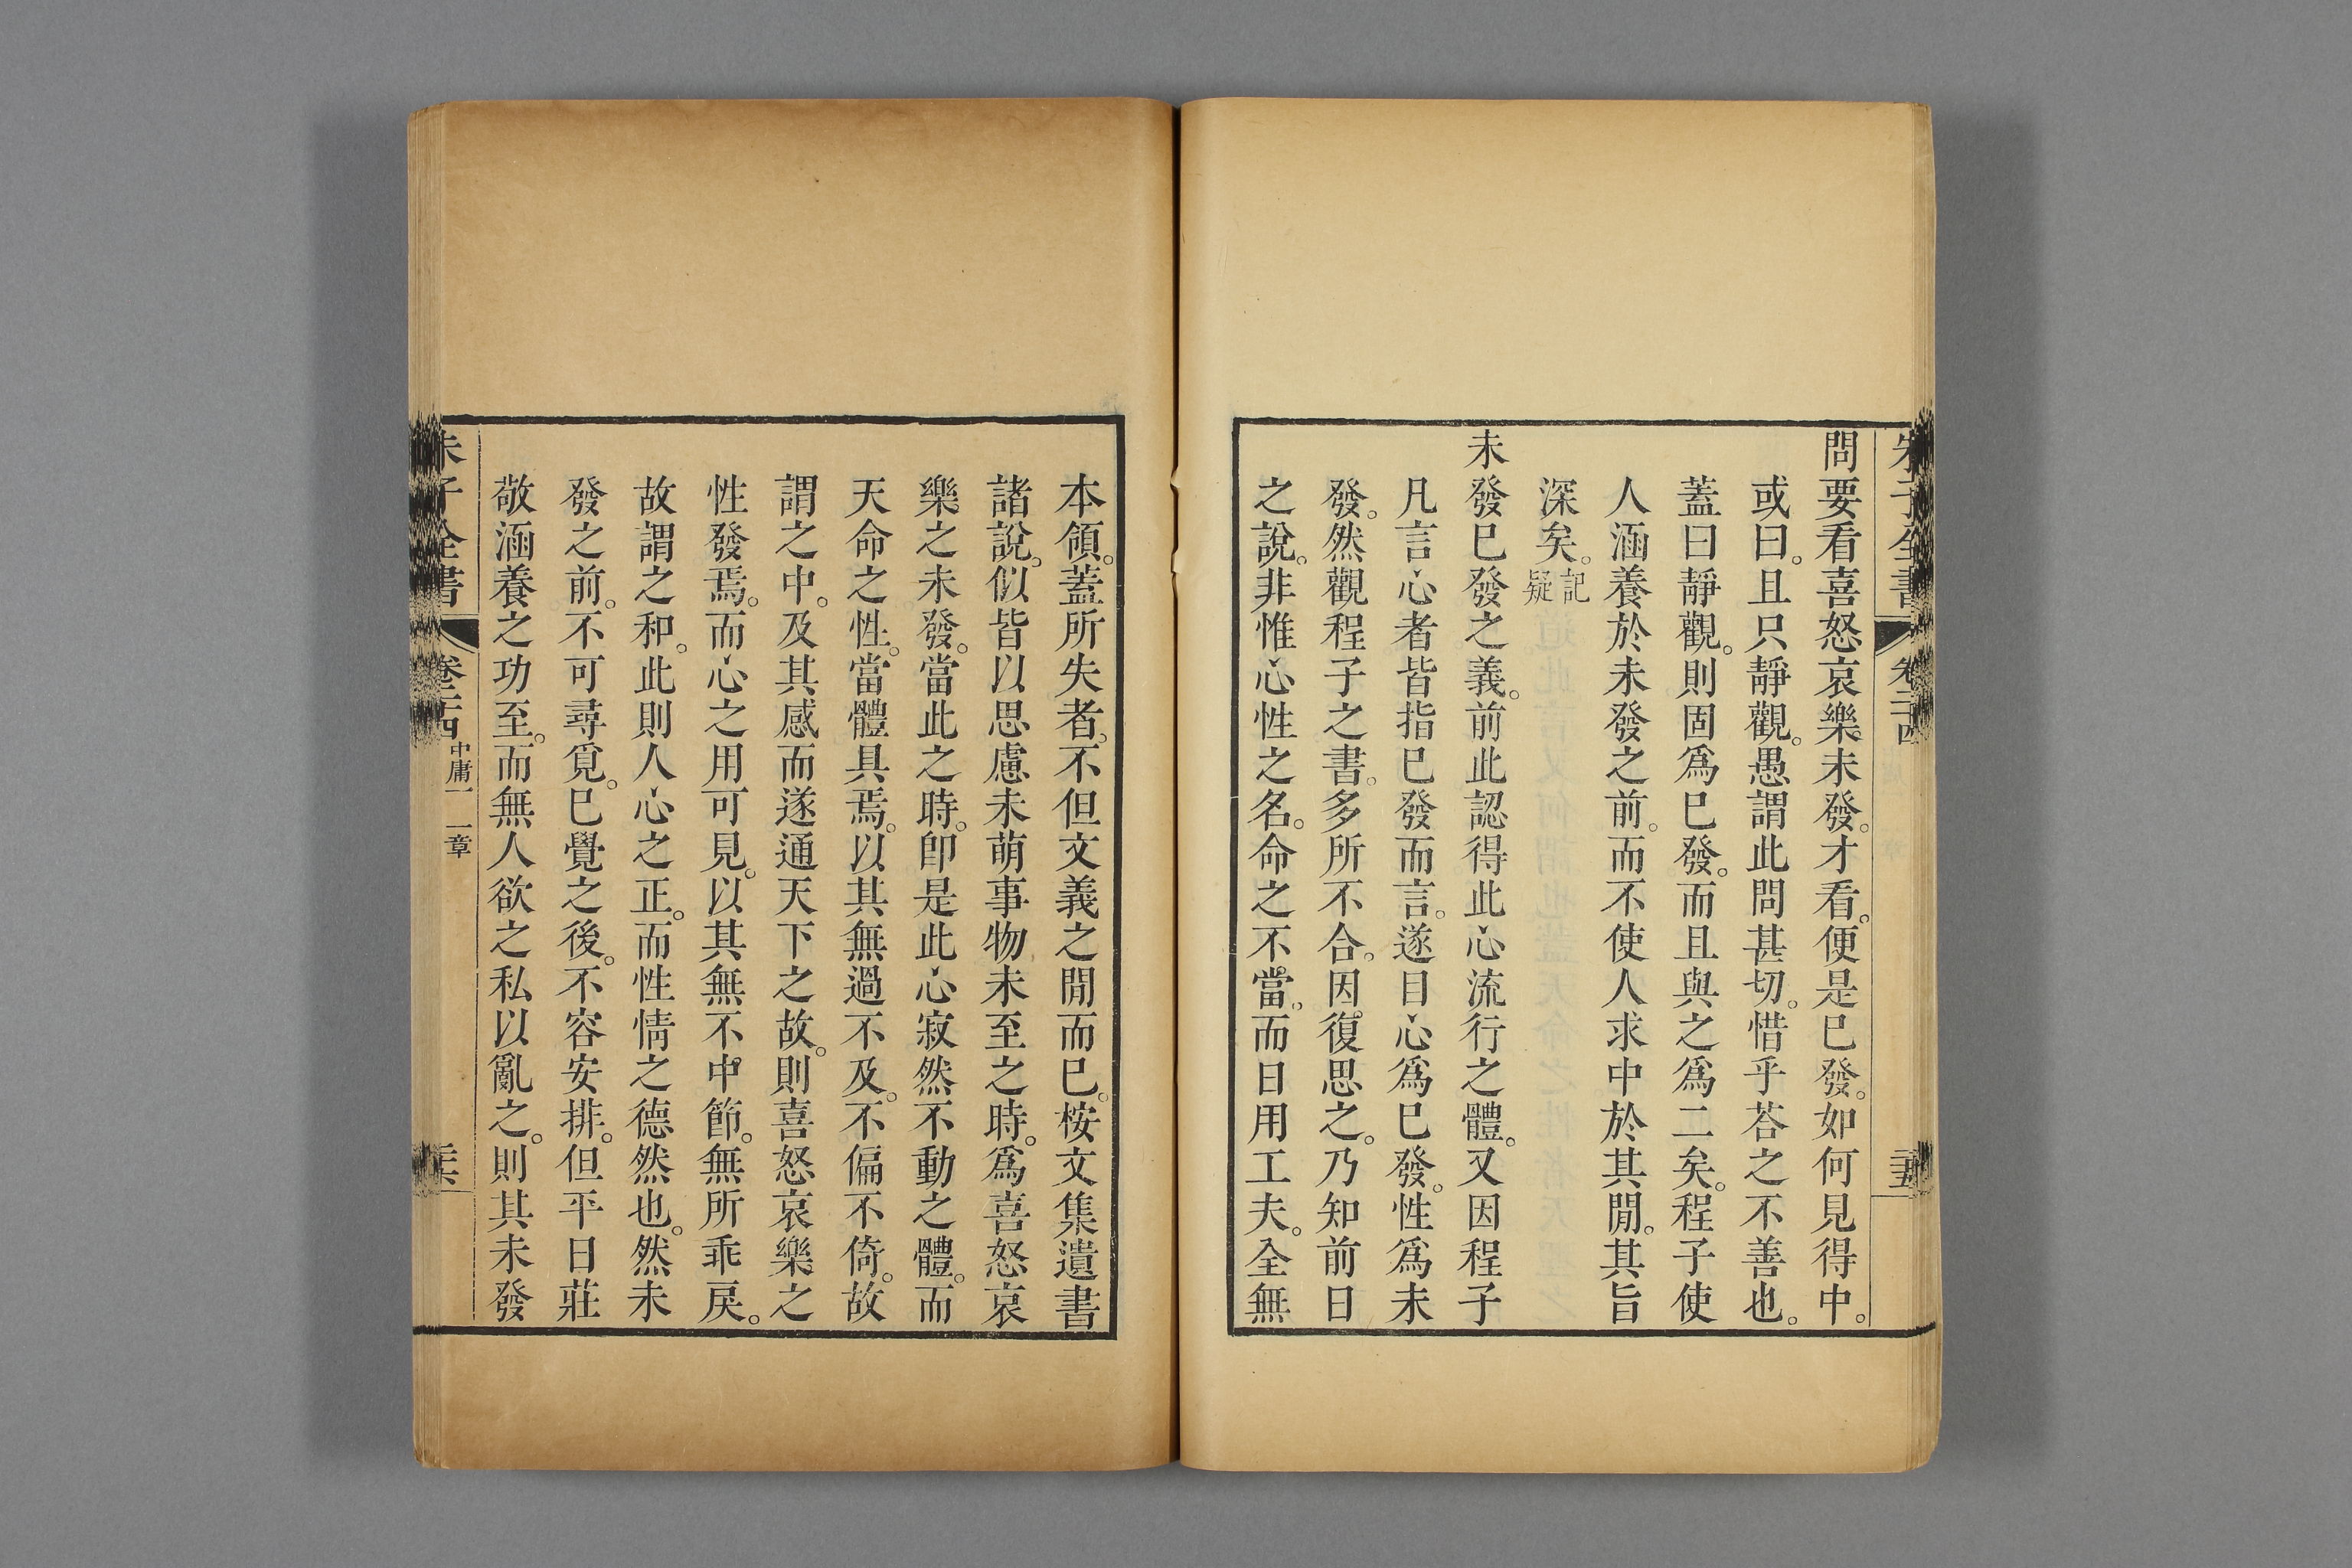 朱子全書 卷二十四 二十五
問要看喜怒哀樂未發。才看。便是已發。如何見得中。
或曰。且只靜觀。愚謂此問甚切。惜乎荅之不善也。
蓋曰靜觀。則固爲已發。而且與之爲二矣。程子使
人涵養於未發之前。而不使人求中於其閒。其旨
深矣。記疑
未發已發之義。前此認得此心流行之體。又因程子
凡言心者皆指已發而言。遂目心爲已發。性爲未
發。然觀程子之書。多所不合。因復思之。乃知前日
之說。非惟心性之名。命之不當。而日用工夫。全無
本領。蓋所失者。不但文義之閒而已。桉文集遺書
諸說。似皆以思慮未萌事物未至之時。爲喜怒哀
樂之未發。當此之時。卽是此心寂然不動之體。而
天命之性。當體具焉。以其無過不及。不偏不倚。故
謂之中。及其感而遂通天下之故。則喜怒哀樂之
性發焉。而心之用可見。以其無不中節。無所乖戾。
故謂之和。此則人心之正。而性情之德然也。然未
發之前。不可尋覓。已覺之後。不容安排。但平日莊
敬涵養之功至。而無人欲之私以亂之。則其未發
朱子全書 卷二十四 中庸一 一章